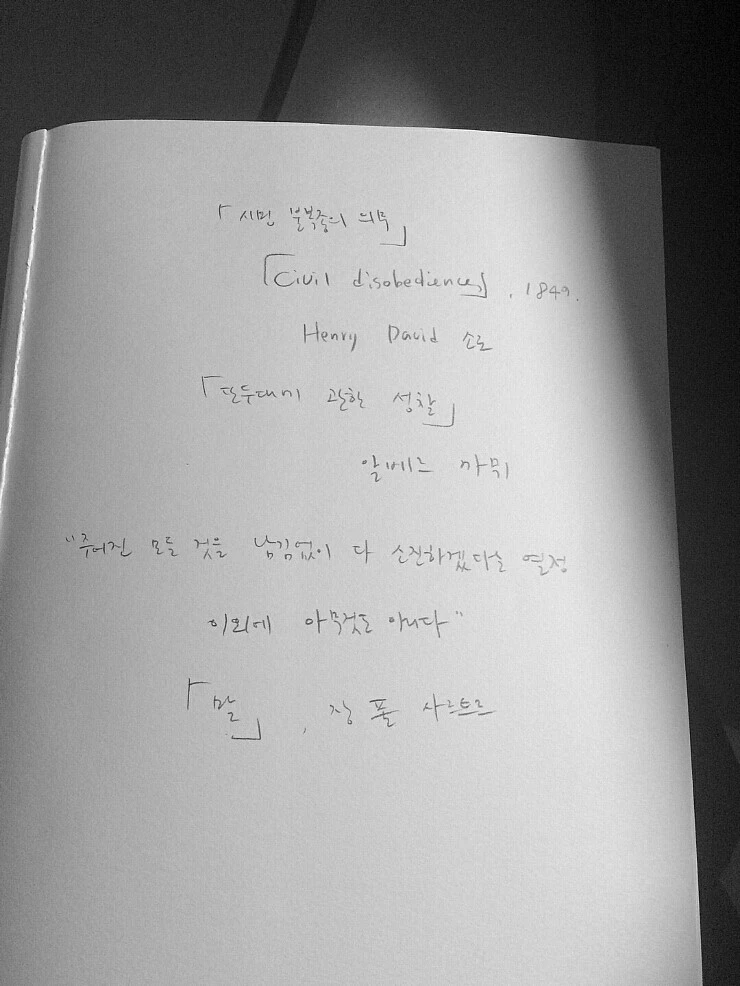 「시민 불복종의 의무」
「Civil disobedience」, 1849.
Henry David 소로
「단두대에 관한 성찰」
알베르 까뮈
"주어진 모든 것을 남김없이 다 소진하겠다는 열정
이외에 아무것도 아니다"
「말」, 장 폴 사르트르